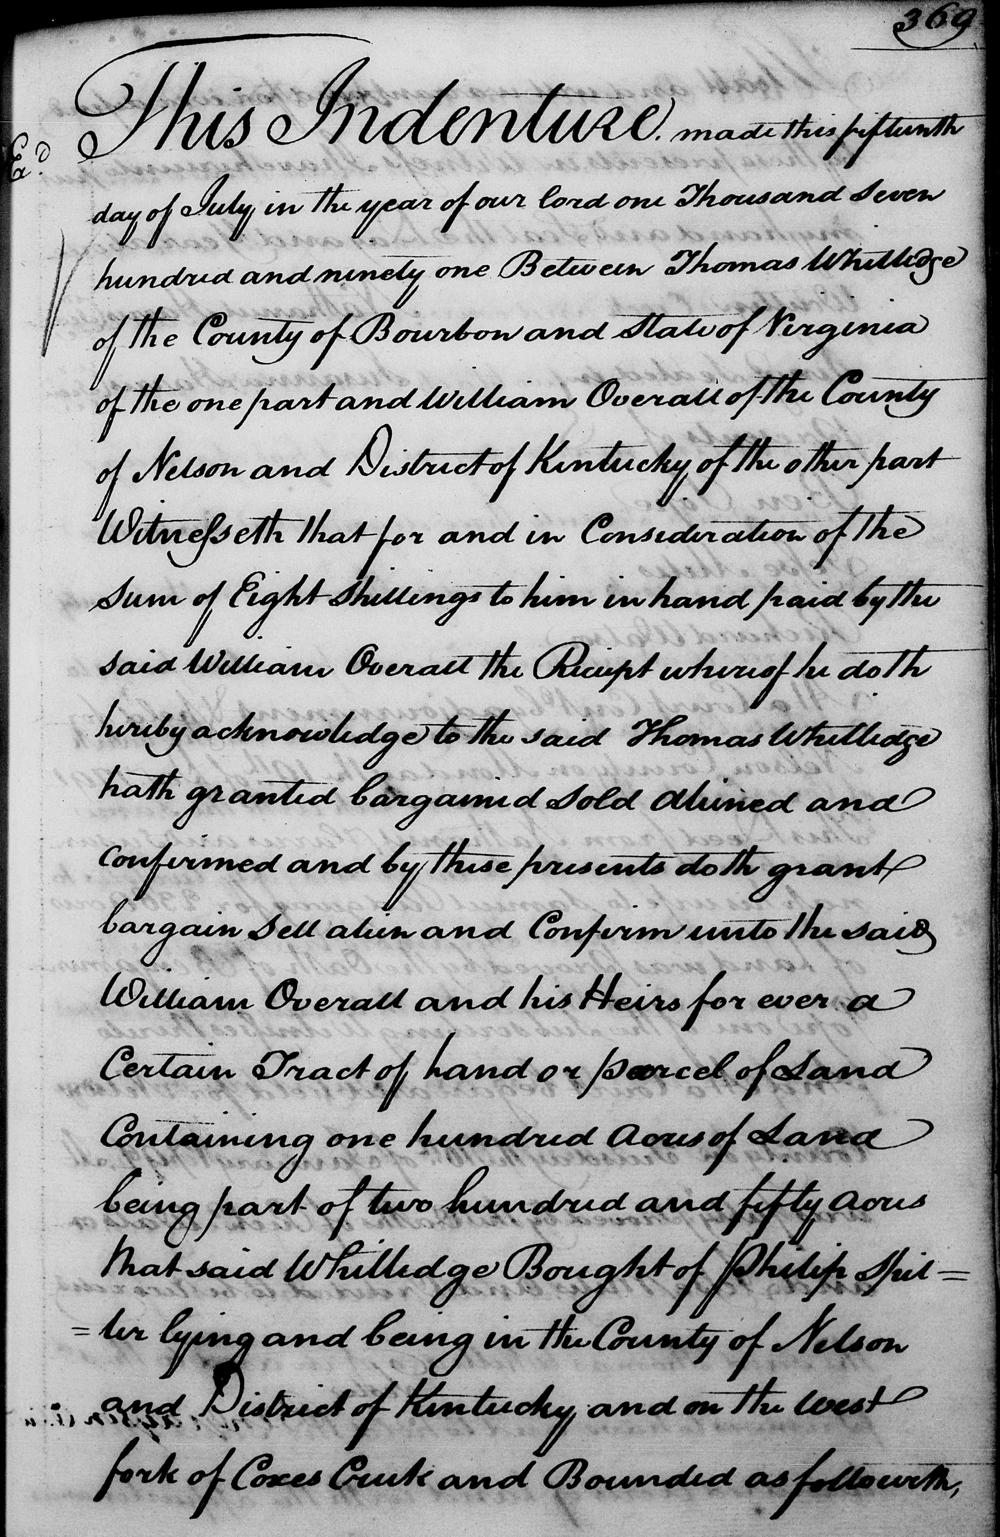 369
This Indenture. made this fifteenth
Ex.d
day of July in the year of our lord one Thousand Seven
hundred and ninety one Between Thomas Whitledge
of the County of Bourbon and State of Virginia
of the one part and William Overall of the County
of Nelson and District of Kentucky of the other part
Witnesseth that for and in Consideration of the
Sum of Eight Shillings to him in hand paid by the
said William Overall the Reciept whereof he doth
hereby acknowledge to the said Thomas Whitledge
hath granted bargained Sold aliened and
confirmed and by these presents doth grant
bargain Sell alien and Confirm unto the said
William Overall and his Heirs for ever a
Certain Tract of hand or parcel of Land
Containing one hundred acres of Land
being part of two hundred and fifty acres
that said Whitledge Bought of Philip Spil=
=ler lying and being in the County of Nelson
and District of Kentucky and on the West
fork of Coxes Creek and Bounded as followeth,